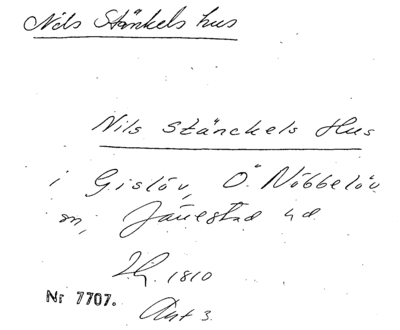 Nils Stänkels hus
Nils Stänckels Hus
i Gislöv, Ö. Nöbbelöv
sn, Järrestad hd
1810
Nr 7707.
Akt 3.